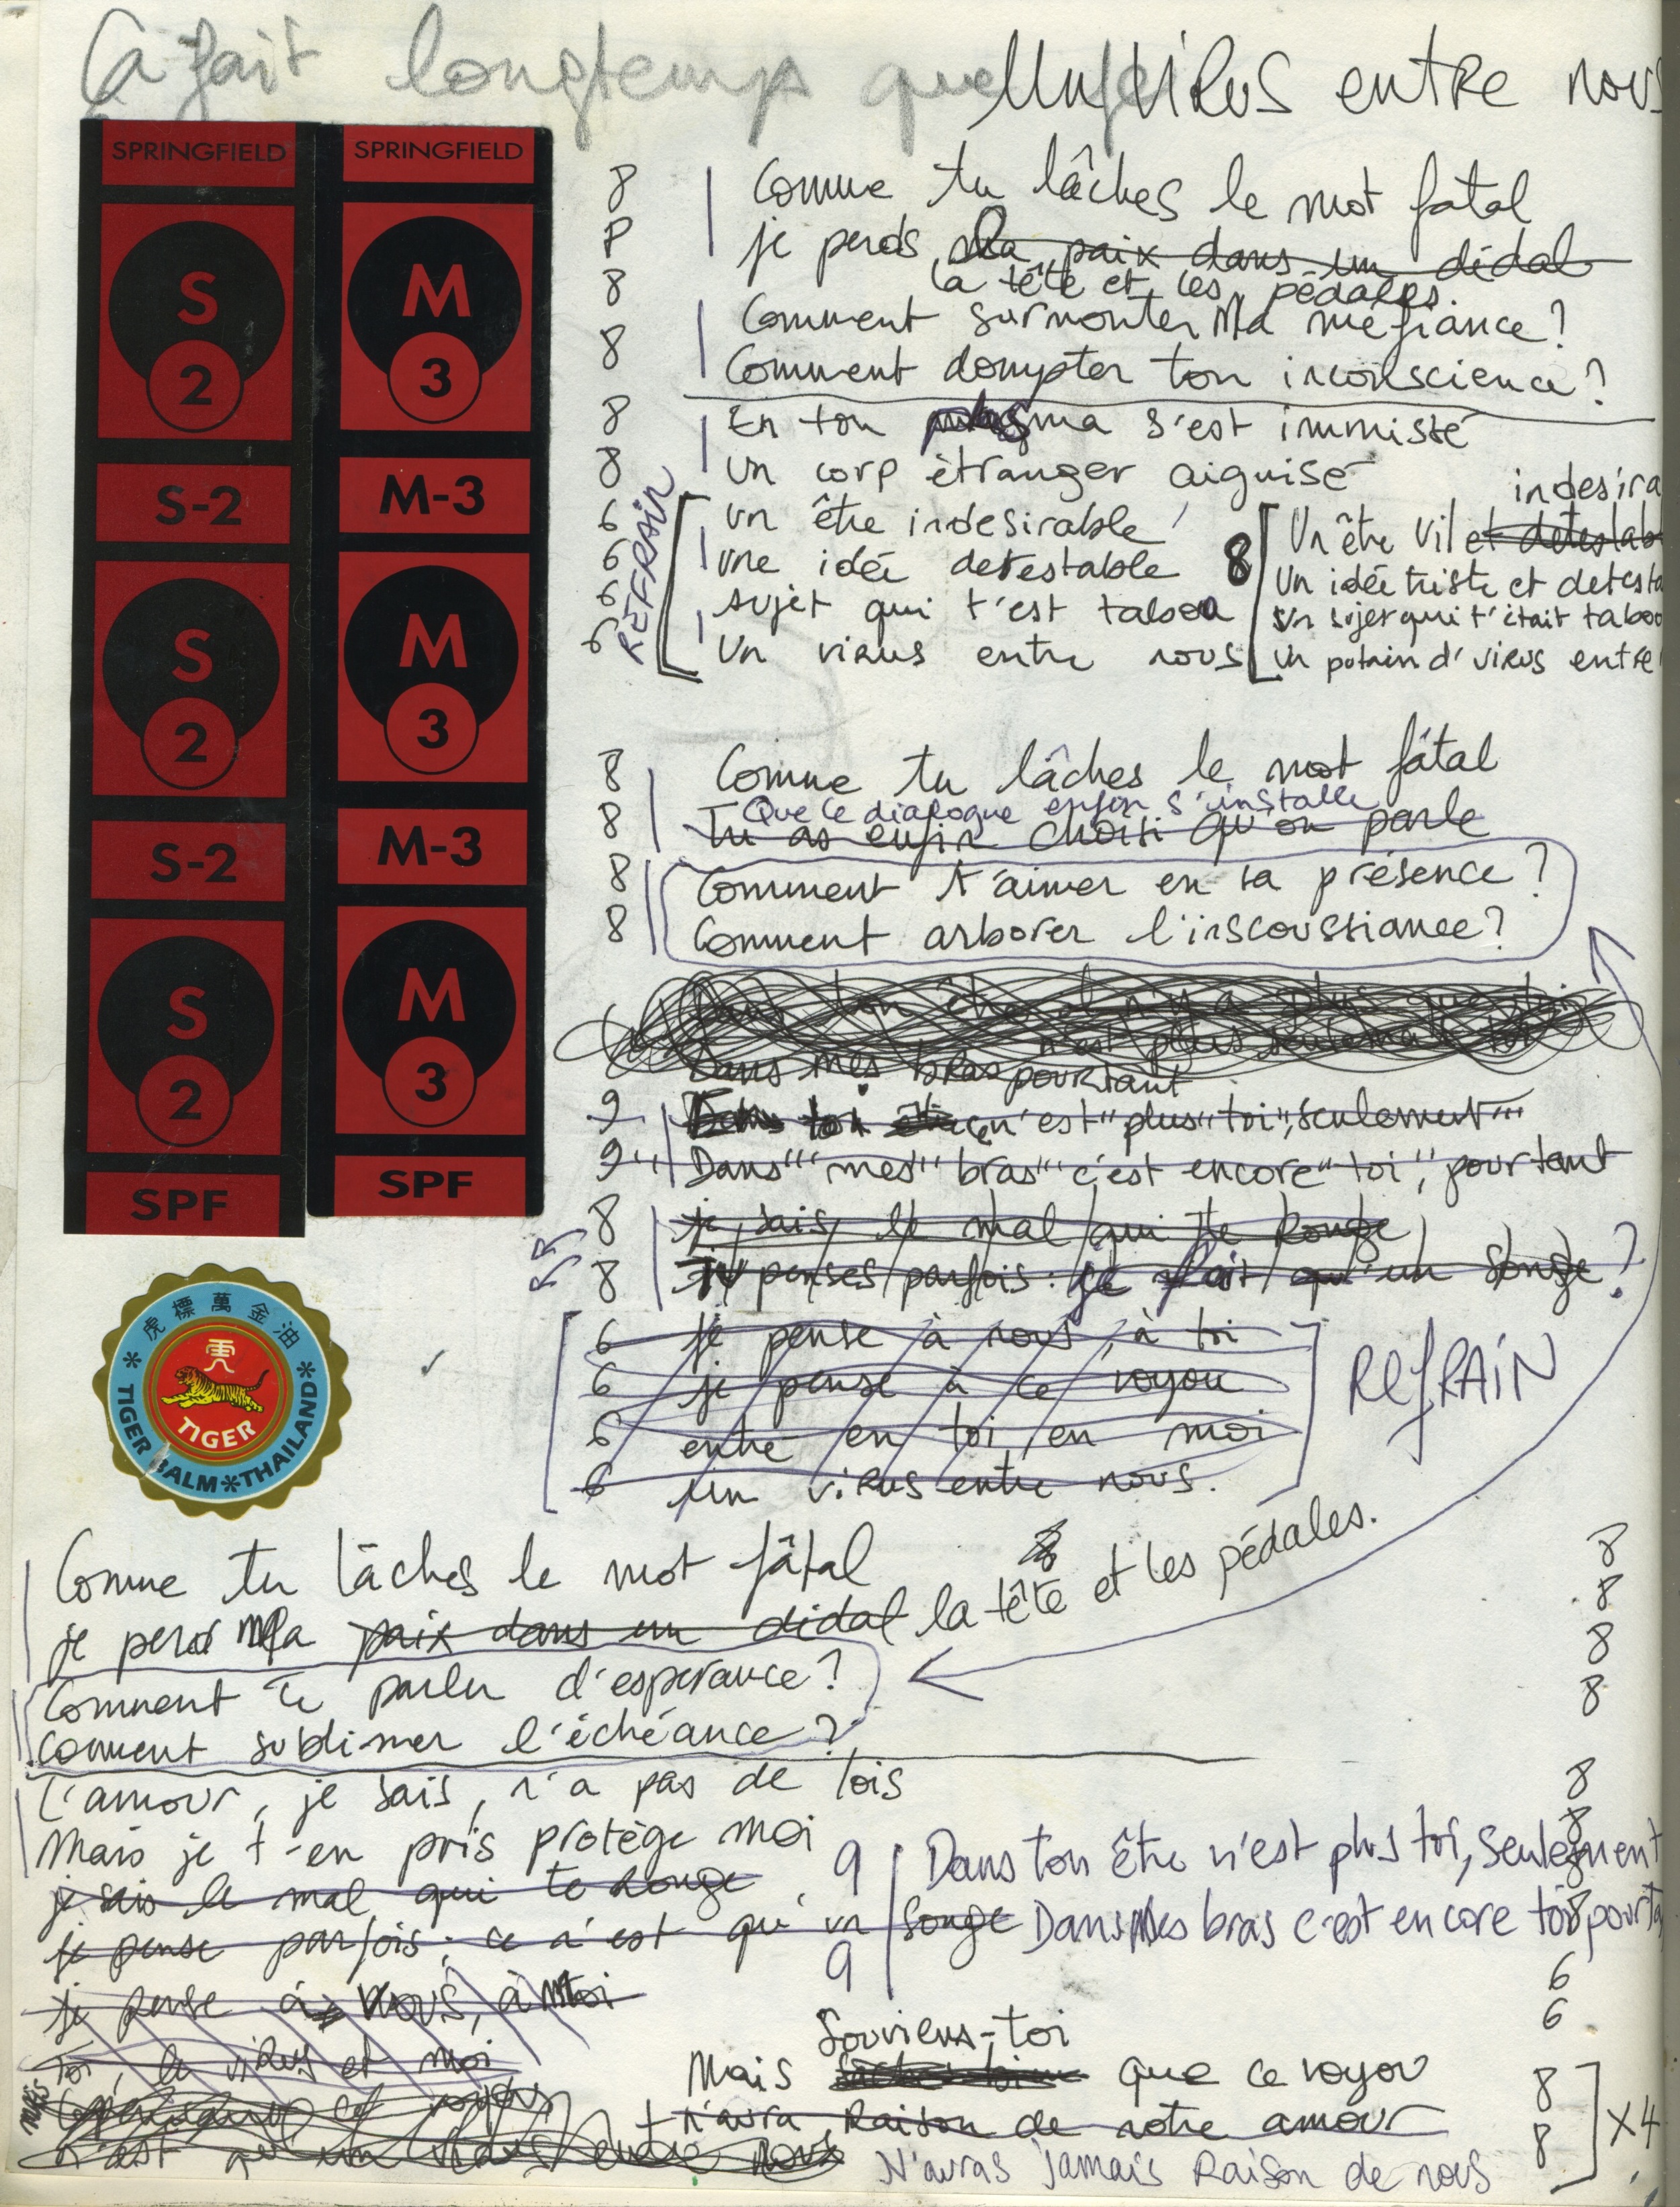 Ça fait longtemps que
Un Virus entre nous
SPRINGFIELD
S
2
S-2
S
2
S-2
S
2
SPF
SPRINGFIELD
M
3
M-3
M
3
M-3
M
3
SPF
虎標萬金油
TIGER
TIGER BALM * THAILAND *
8 Comme tu lâches le mot fatal
8 je perds Ma paix dans un didal
la tête et les pédales.
8 Comment surmonter Ma méfiance?
8 Comment dompter ton inconscience?
8 En ton plasma s'est immisté
8 Un corp étranger aiguisé
REFRAIN
6 Un être indesirable
6 Une idée detestable
6 sujet qui t'est taboo
6 Un virus entre nous
indesira
8 Un être vil et detestab
Un idée triste et detesta
Un sujet qui t'était taboo
Un putain d'virus entre
8 Comme tu lâches le mot fâtal
Que le dialogue enfin s'installe
8 Tu as enfin choisi qu'on parle
8 Comment t'aimer en sa présence?
8 Comment arborer l'inscoussiance?
Dans ton être il n'y a plus que toi
n'est plus seulement toi
Dans mes bras pourtant
9 Dans ton être n'est plus toi, seulement
9 Dans mes bras c'est encore toi, pourtant
8 je sais le mal qui te Ronge
8 Tu penses parfois: qu'un songe?
6 je pense à nous, à toi
6 je pense à ce voyou
6 entré en toi, en moi
6 Un virus entre nous.
REFRAIN
Comme tu lâches le mot fâtal
je perd Ma paix dans un didal la tête et les pédales.
Comment te parler d'esperance?
Comment sublimer l'échéance?
L'amour, je sais, n'a pas de lois
Mais je t'en pris protège moi
je sais le mal qui te Ronge
je pense parfois; ce n'est qu'un songe
9 Dans ton être n'est plus toi, seulement
9 Dans Mes bras c'est encore toi pourta
je pense à nous, à toi
Toi, le virus et moi
mais
n'est qu'un virus entre nous
Souviens-toi
Mais que ce voyou
n'aura Raison de notre amour
N'auras jamais Raison de nous
8
8
8
8
8
8
8
8
6
6
8
8
x4